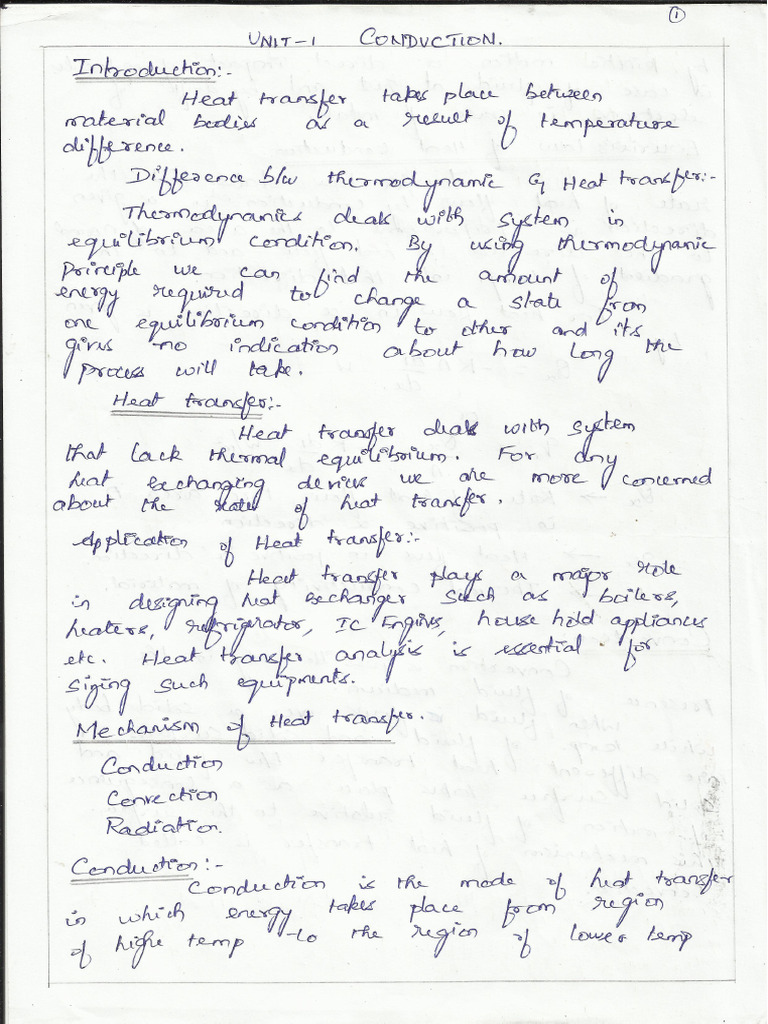 ①
UNIT-1 CONDUCTION.
Introduction:-
Heat transfer takes place between
material bodies as a result of temperature
difference.
Difference b/w thermodynamic & Heat transfer:-
Thermodynamics deals with system in
equilibrium condition. By using thermodynamic
Principle we can find the amount of
energy required to change a state from
one equilibrium condition to other and its
gives no indication about how long the
process will take.
Heat transfer:-
Heat transfer deals with system
that lack thermal equilibrium. For any
heat exchanging devices we are more concerned
about the rate of heat transfer.
Application of Heat transfer:-
Heat transfer plays a major role
in designing heat exchanger such as boilers,
heaters, refrigirator, IC Engines, house hold appliances
etc. Heat transfer analysis is essential for
sizing such equipments.
Mechanism of Heat transfer.
Conduction
Convection
Radiation.
Conduction:-
Conduction is the mode of heat transfer
in which energy takes place from region
of high temp to the region of lower temp